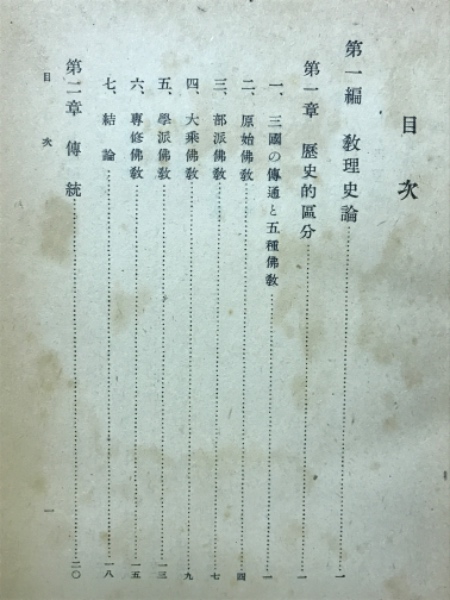 目次
第一編 敎理史論……一
第一章 歷史的區分……一
一、三國の傳通と五種佛敎……一
二、原始佛敎……四
三、部派佛敎……七
四、大乘佛敎……九
五、學派佛敎……一三
六、專修佛敎……一五
七、結論……一八
第二章 傳統……二〇
目次 一